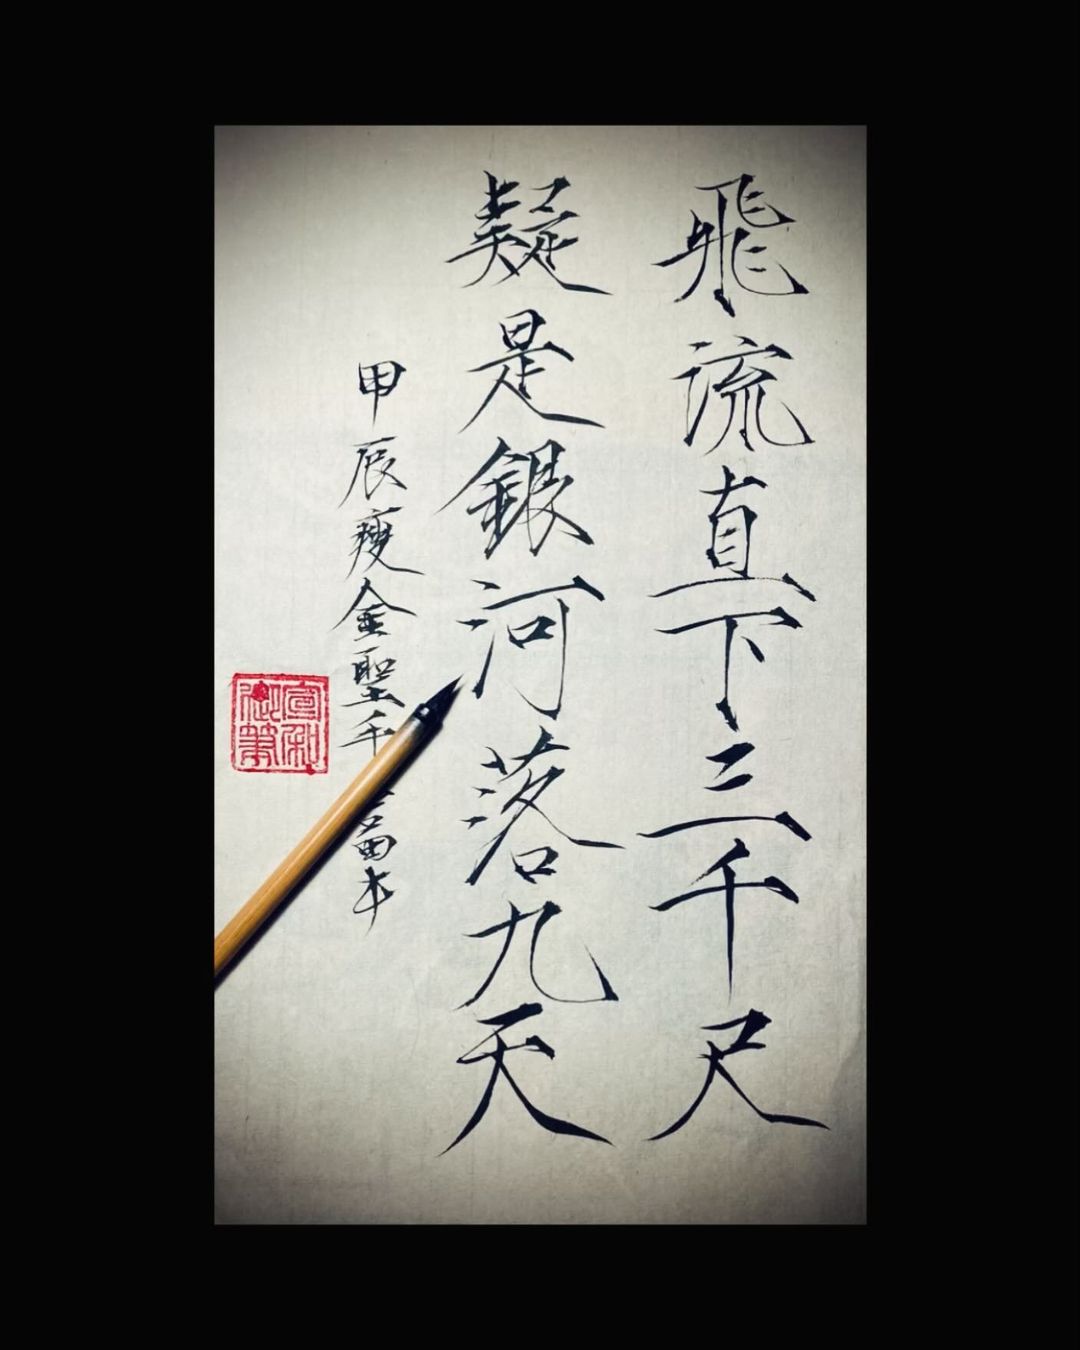 飛流直下三千尺
疑是銀河落九天
甲辰瘦金聖手
富本
宣和
御筆